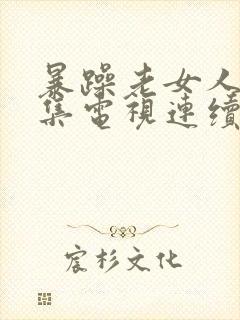 暴躁老女人
集電視連續
宸杉文化